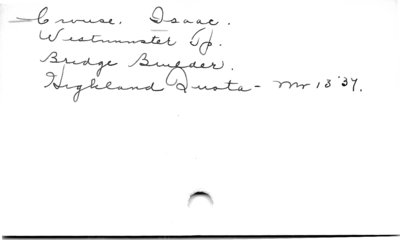 Crouse, Isaac.
Westminster Tp.
Bridge Builder.
Highland Quota - Mr 18 '37.